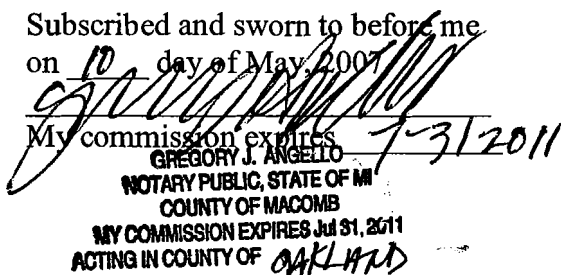 Subscribed and sworn to before me
on 10 day of May, 2007
My commission expires 7-31 2011
GREGORY J. ANGELLO
NOTARY PUBLIC, STATE OF MI
COUNTY OF MACOMB
MY COMMISSION EXPIRES Jul 31, 2011
ACTING IN COUNTY OF OAKLAND